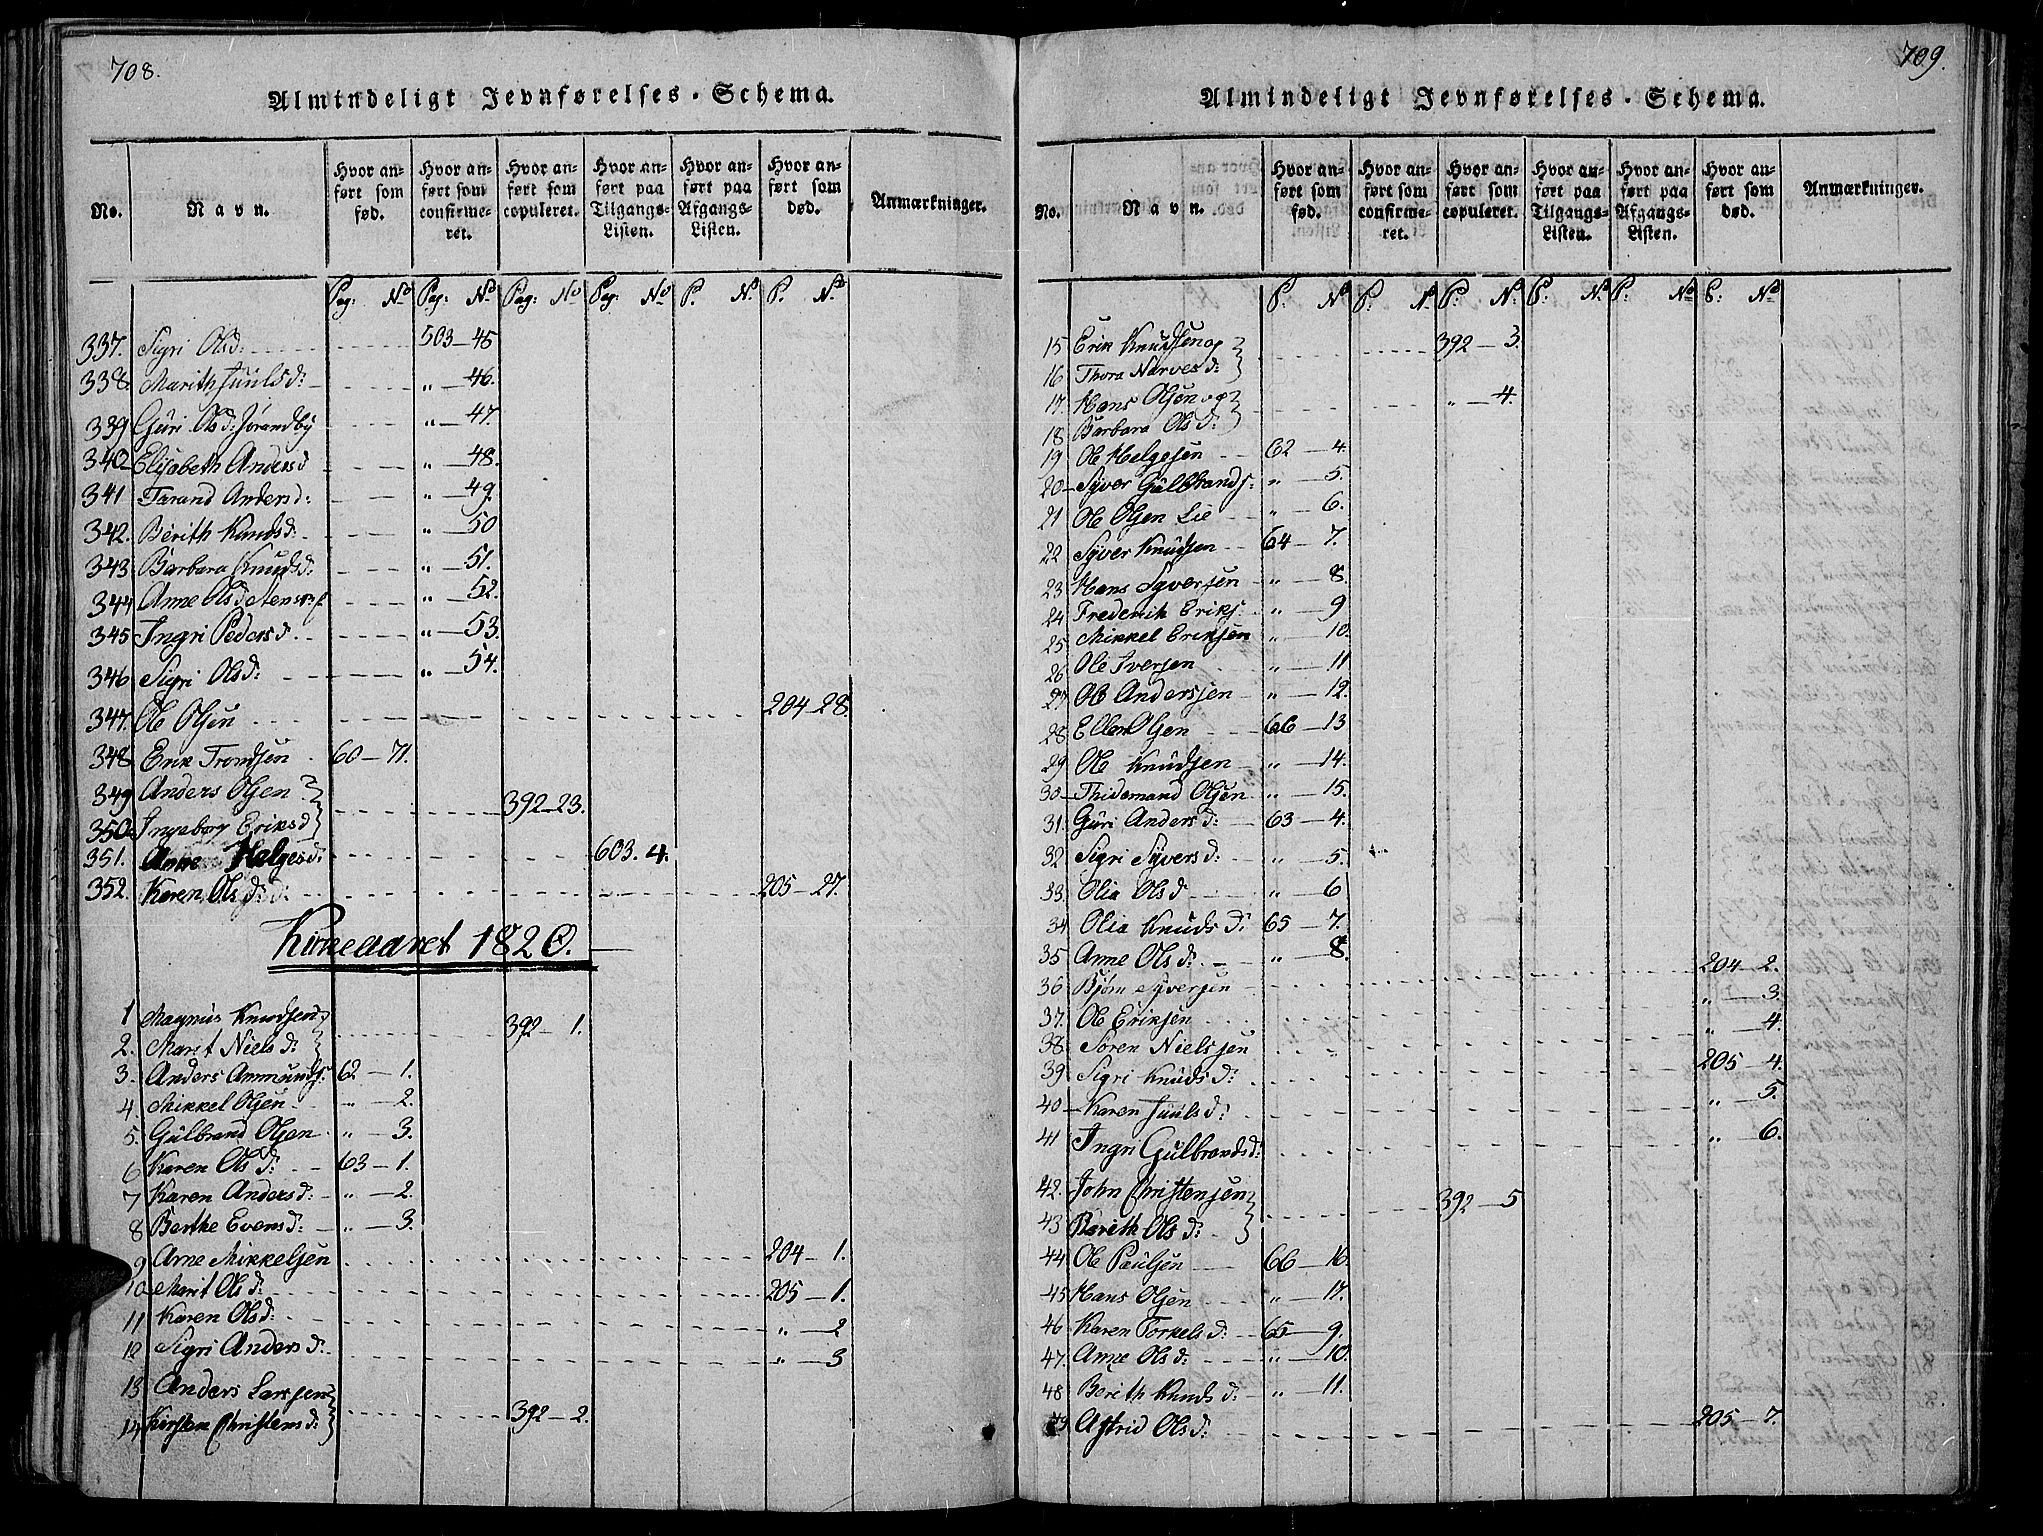 708.
Almindeligt Jevnførelses-Schema.
No.
Navn.
Hvor anført som fød.
Hvor anført som confirmeret.
Hvor anført som copuleret.
Hvor anført paa Tilgangs-Listen.
Hvor anført paa Afgangs-Listen.
Hvor anført som død.
Anmærkninger.
Pag: No Pag: No Pag: No Pag: No P. N. P. No
337. Sigri Olsd. 503-45
338. Marith Juulsd: " 46.
339 Guri Olsd: Jørandby " 47.
340 Elisabeth Andersd " 48.
341 Tarand Andersd: " 49
342. Berith Knudsd: " 50
343 Barbara Knudsd: " 51.
344 Anne Olsd " 52.
345 Ingri Pedersd. " 53.
346 Sigri Olsd: " 54.
347. Ole Olsen 204-28.
348 Erik Trondsen 60-71.
349 Anders Olsen
350 Ingeborg Eriksd 392-23.
351. Anne Helgesd: 603. 4.
352. Karen Olsd: 205-27.
Kirkeaaret 1820.
1 Magnus Knudsen
2. Marit Nielsd: 392-1.
3. Anders Ammunds: 62-1.
4 Mikkel Olsen " 2.
5. Gulbrand Olsen " 3.
6 Karen Olsd: 63-1.
7 Karen Andersd: " 2.
8 Berthe Evensd: " 3.
9 Arne Mikkelsen 204-1.
10 Marit Olsd: 205-1.
11 Karen Olsd: " 2
12 Sigri Andersd: " 3
13 Anders Larssen
14 Kirsten Christensd: 392-2.
709.
Almindeligt Jevnførelses-Schema.
No.
Navn.
Hvor anført som fød.
Hvor anført som confirmeret.
Hvor anført som copuleret.
Hvor anført paa Tilgangs-Listen.
Hvor anført paa Afgangs-Listen.
Hvor anført som død.
Anmærkninger.
P: No P: No P: N: P: No P: No P: No
15 Erik Knudsen og 392-3.
16 Thora Narvesd:
17. Hans Olsen og " 4.
18 Barbara Olsd:
19 Ole Helgesen 62-4.
20 Syver Gulbrands: " 5.
21 Ole Olsen Lie " 6.
22 Syver Knudsen 64-7.
23 Hans Syversen " 8.
24 Frederik Eriks: " 9
25 Mikkel Eriksen " 10.
26 Ole Iversen " 11
27 Ole Anderssen " 12.
28 Ellen Olsen 66-13
29 Ole Knudsen " 14.
30 Thidemand Olsen " 15.
31. Guri Andersd: 63-4.
32 Sigri Syversd: " 5.
33 Olia Olsd " 6
34 Olia Knudsd: 65-7.
35 Anne Olsd: " 8.
36 Bjørn Syversen 204-2.
37. Ole Eriksen " 3.
38 Søren Nielssen " 4.
39 Sigri Knudsd: 205-4.
40 Karen Juulsd: " 5.
41 Ingri Gulbrandsd: " 6.
42. John Christensen
43 Berith Olsd: 392-5
44 Ole Paulsen 66-16.
45 Hans Olsen " 17.
46 Karen Torkelsd: 65-9.
47. Anne Olsd: " 10.
48 Berith Knudsd: " 11.
49 Astrid Olsd: 205-7.